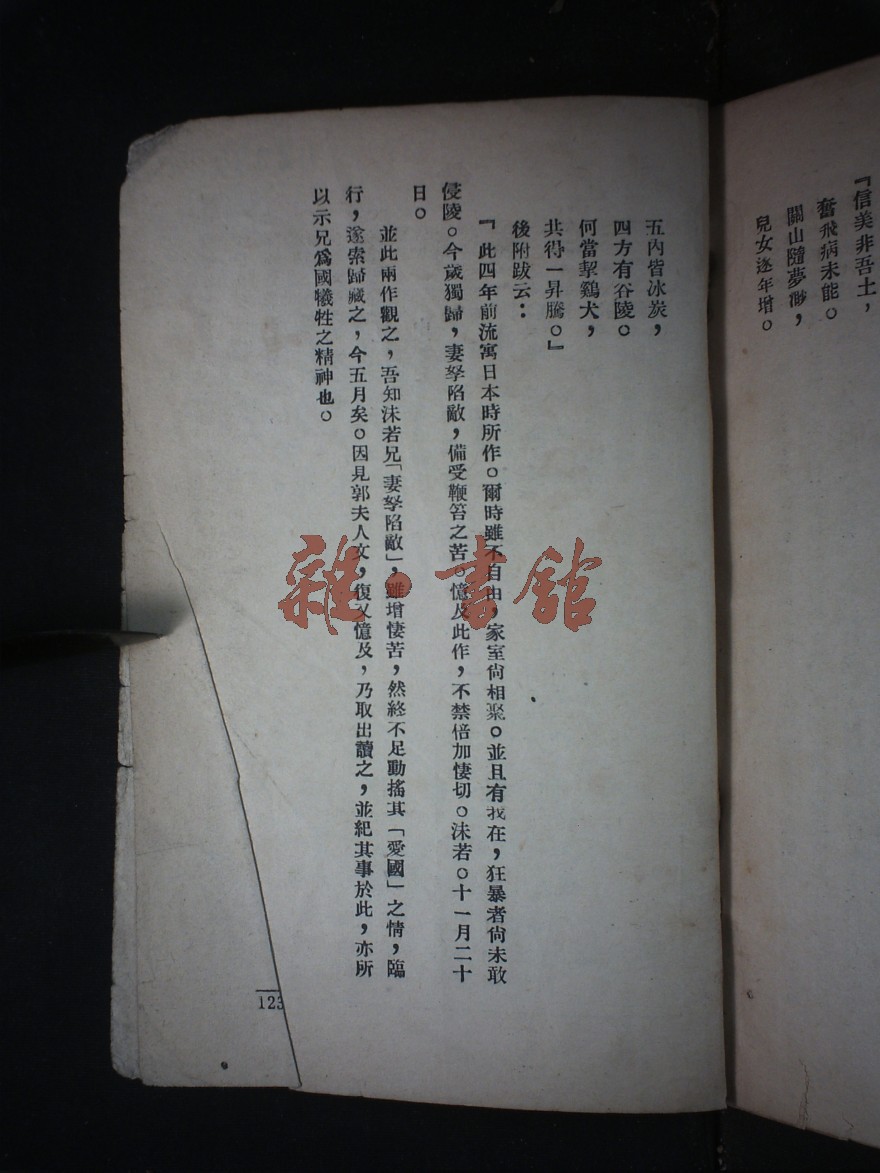 『信美非吾土，
奮飛病未能。
關山隨夢渺，
兒女逐年增。
五內皆冰炭，
四方有谷陵。
何當挈鷄犬，
共得一昇騰。』
後附跋云：
『此四年前流寓日本時所作。爾時雖不自由，家室尙相聚。並且有我在，狂暴者尙未敢
侵陵。今歲獨歸，妻孥陷敵，備受鞭笞之苦。憶及此作，不禁倍加悽切。沫若。十一月二十
日。
並此兩作觀之，吾知沫若兄「妻孥陷敵」，雖增悽苦，然終不足動搖其「愛國」之情，臨
行，遂索歸藏之，今五月矣。因見郭夫人文，復又憶及，乃取出讀之，並紀其事於此，亦所
以示兄爲國犧牲之精神也。
123
雜·書館